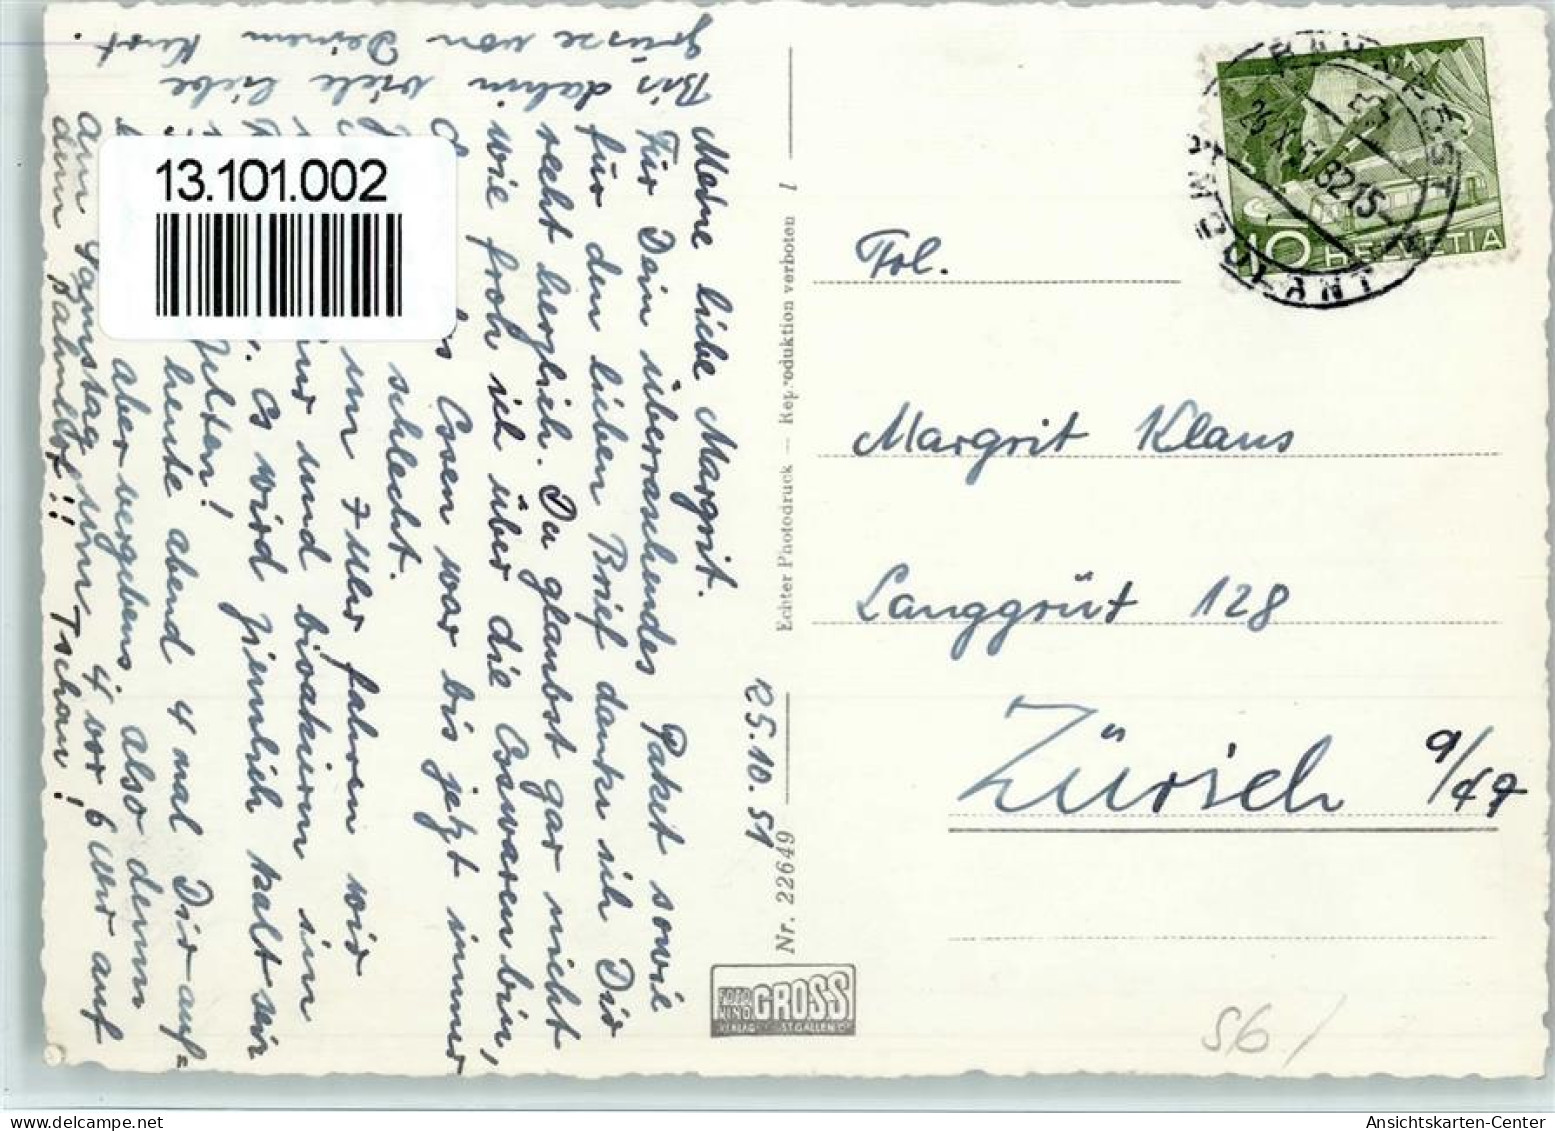 Meine liebe Margrit.
Für Dein überraschendes Paket sowie
für den lieben Brief danke ich Dir
recht herzlich. Du glaubst gar nicht
wie froh ich über die Esswaren bin,
Essen war bis jetzt immer
schlecht.
um 7 Uhr fahren wir
und biwakieren im
Es wird ziemlich kalt sein
Zelten!
heute abend 4 mal Dir auf=
aber vergebens, also denn
am Samstag um 4 vor 6 Uhr auf
dem Bahnhof!! Tschau!
Bis dahin viele liebe
Grüsse von Deinem Kurt.
13.101.002
25.10.51
Echter Photodruck — Reproduktion verboten 1
Nr. 22649
FOTO KINO GROSS
VERLAG ST. GALLEN
Frl.
Margrit Klaus
Langgrüt 128
Zürich 9/47
10 HELVETIA
FELDPOST
26.X.51
56/
oldthing.com
Ansichtskarten-Center